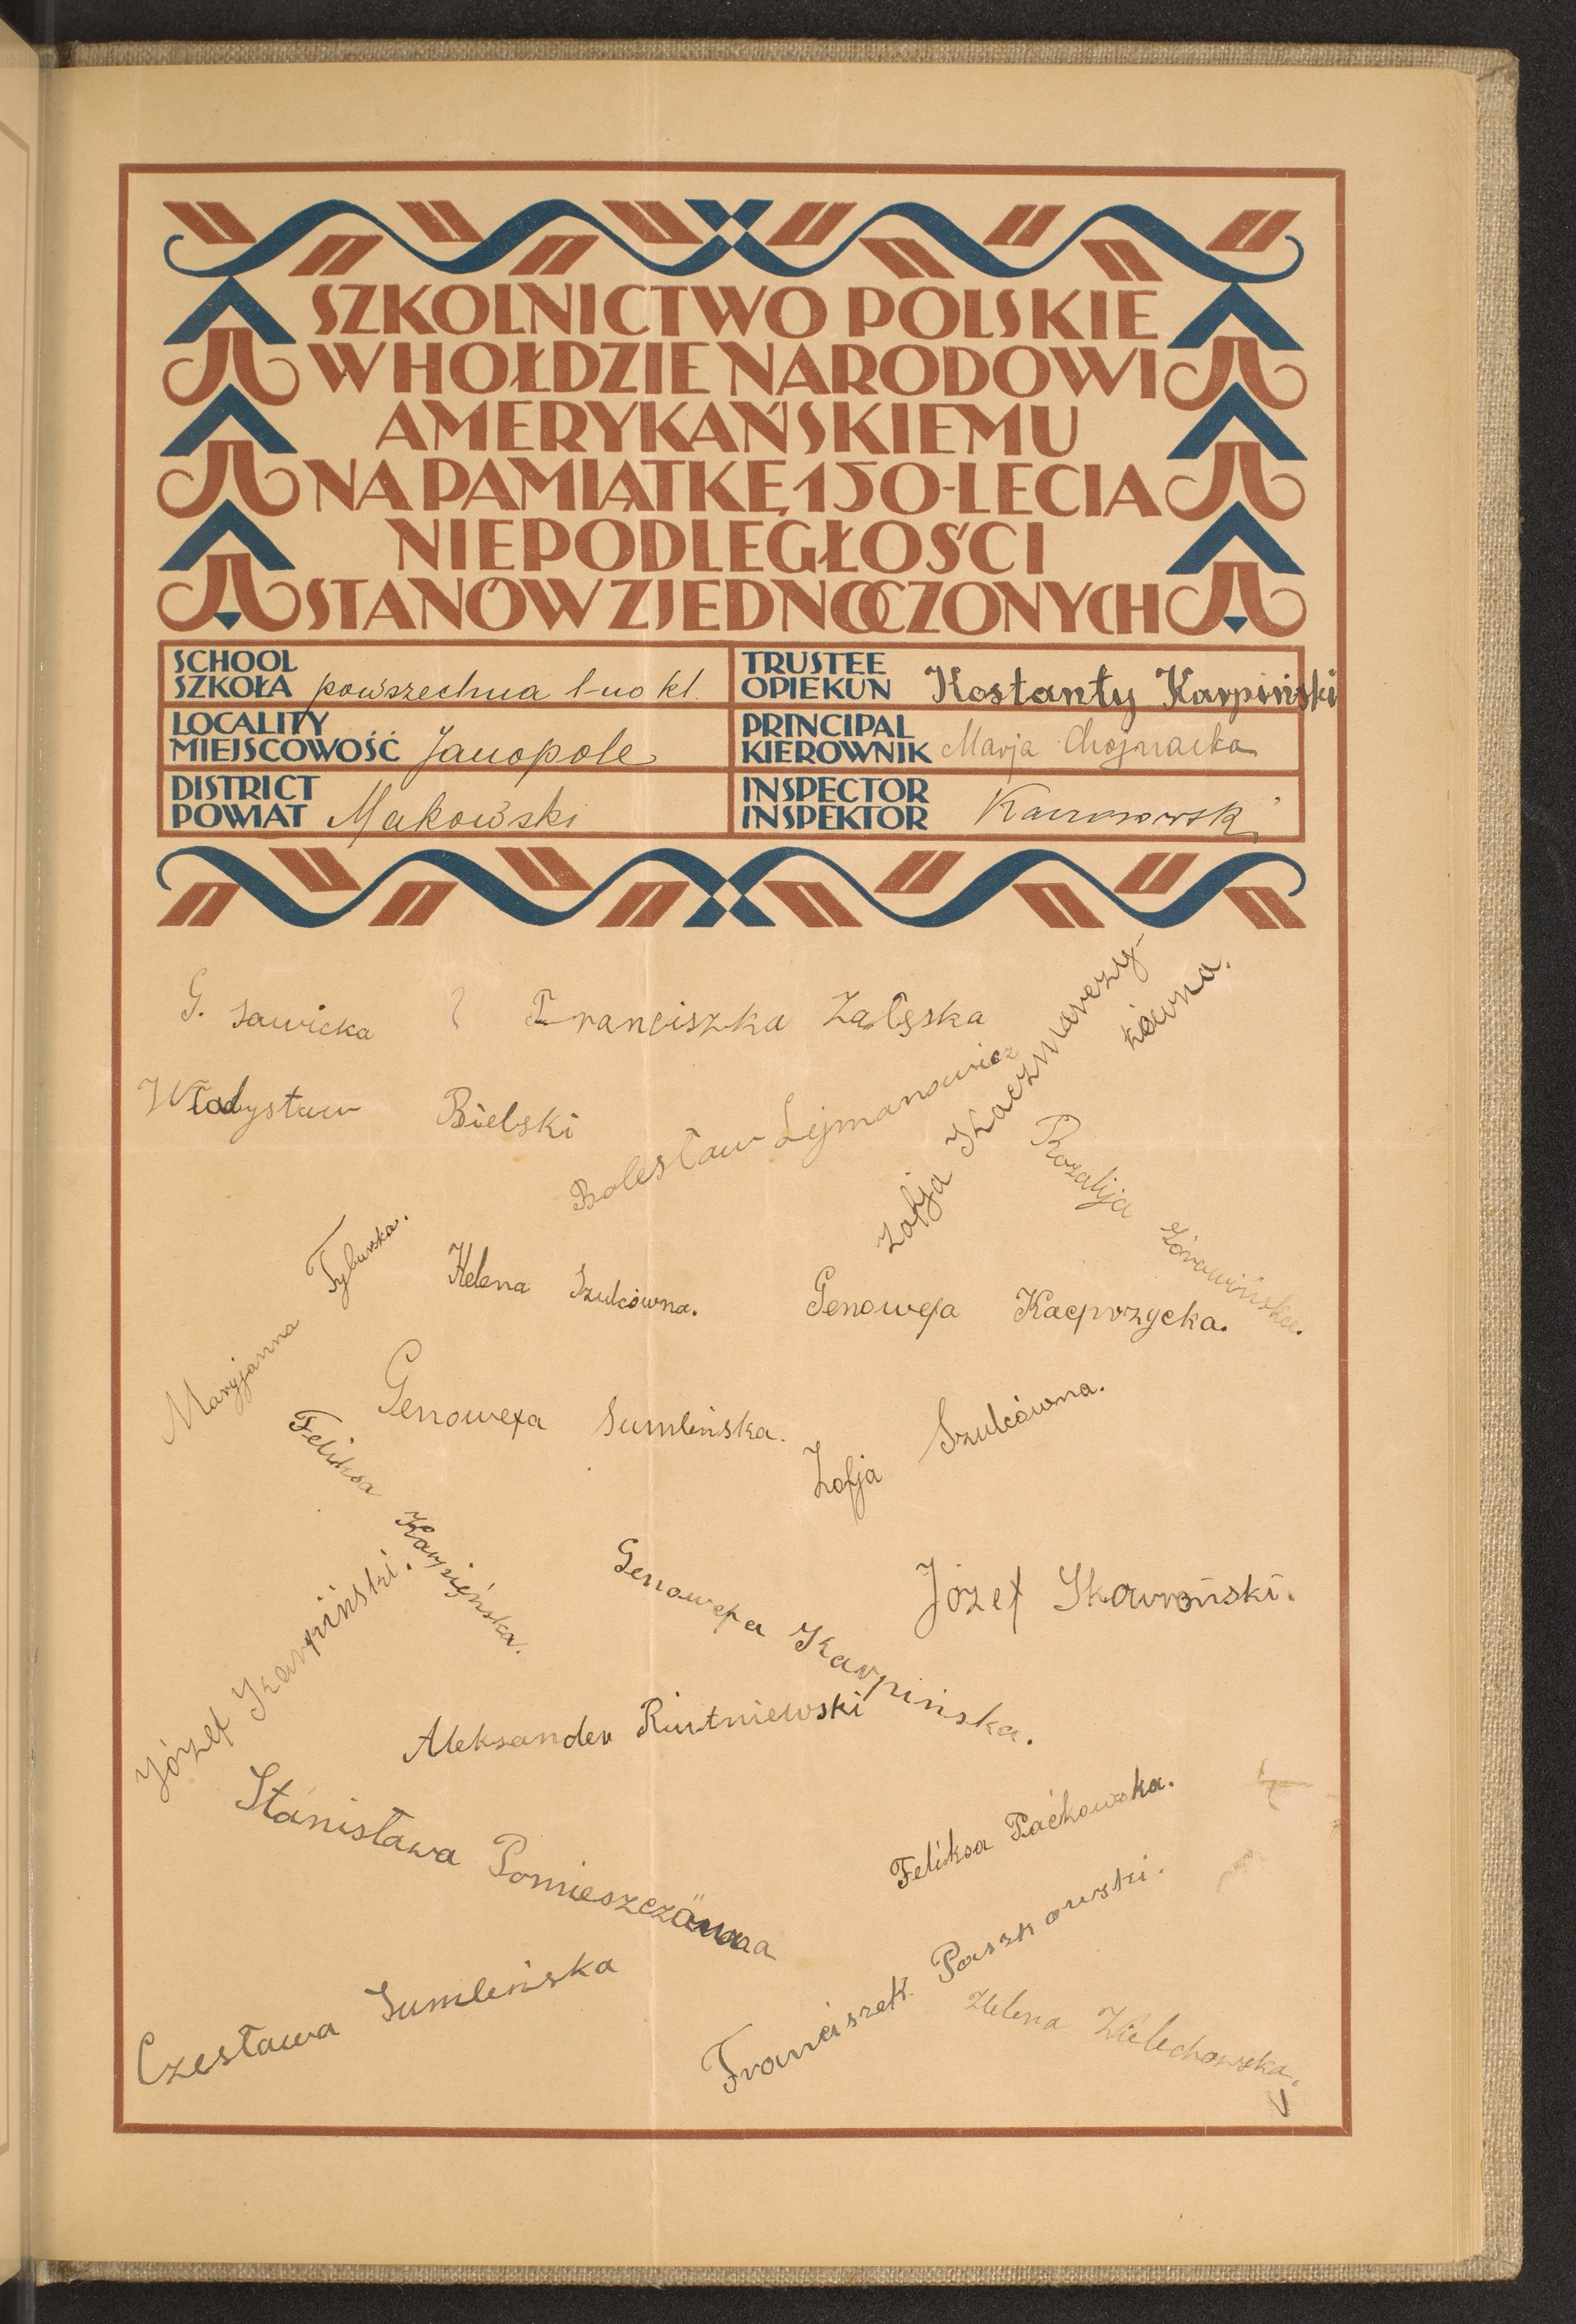 SZKOLNICTWO POLSKIE
W HOŁDZIE NARODOWI
AMERYKAŃSKIEMU
NA PAMIĄTKĘ 150-LECIA
NIEPODLEGŁOŚCI
STANÓW ZJEDNOCZONYCH
SCHOOL
SZKOŁA powszechna 1-no kl.
TRUSTEE
OPIEKUN Kostanty Karpiński
LOCALITY
MIEJSCOWOŚĆ Janopole
PRINCIPAL
KIEROWNIK Marja Chojnacka
DISTRICT
POWIAT Makowski
INSPECTOR
INSPEKTOR
G. Sawicka
Franciszka Załęska
Władysław Bielski
Bolesław Lejmanowicz
Zofja Kaczmarczy-
kówna.
Rozalija Żórawińska.
Maryjanna Tyburska.
Helena Szulcówna.
Genowefa Kacprzycka.
Genowefa Sumlińska.
Zofja Szulcówna.
Feliksa Karpięńska.
Józef Karpiński.
Genowefa Karpińska.
Józef Skawroński.
Aleksander Rutniewski
Stanisława
Feliksa Paćkowska.
Franciszek Paszkowski.
Czesława Sumleńska
Helena Zielechowska.